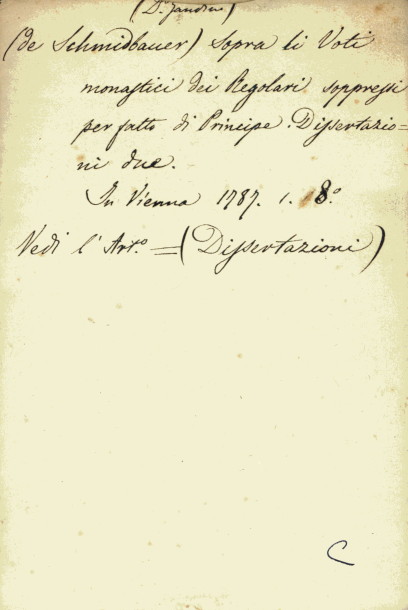 (de Schmidbauer) sopra li Voti
monastici dei Regolari soppressi
per fatto di Principe. Dissertazio=
ni due.
In Vienna 1787. 1. 8.º
Vedi l'Art.º = (Dissertazioni)
C